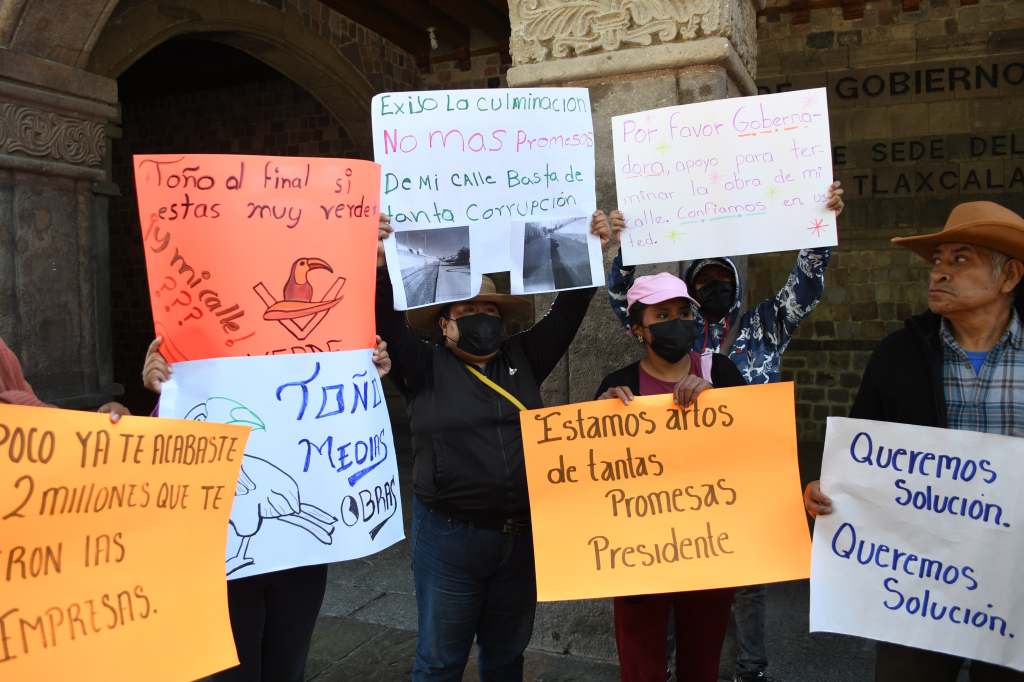 Toño al final si
estas muy verde
¡y mi calle!
????
VERDE
EXIJO LA CULMINACIÓN
NO MAS PROMESAS
DE MI CALLE BASTA DE
tanta CORRUPCIÓN
Por favor Goberna-
dora, apoyo para ter-
minar la obra de mi
calle. Confiamos en us
ted.
DE GOBIERNO
SEDE DEL
TLAXCALA
POCO YA TE ACABASTE
2 MILLONES QUE TE
RON LAS
EMPRESAS.
TOÑO
MEDIAS
OBRAS
Estamos artos
de tantas
Promesas
Presidente
Queremos
Solución.
Queremos
Solución.